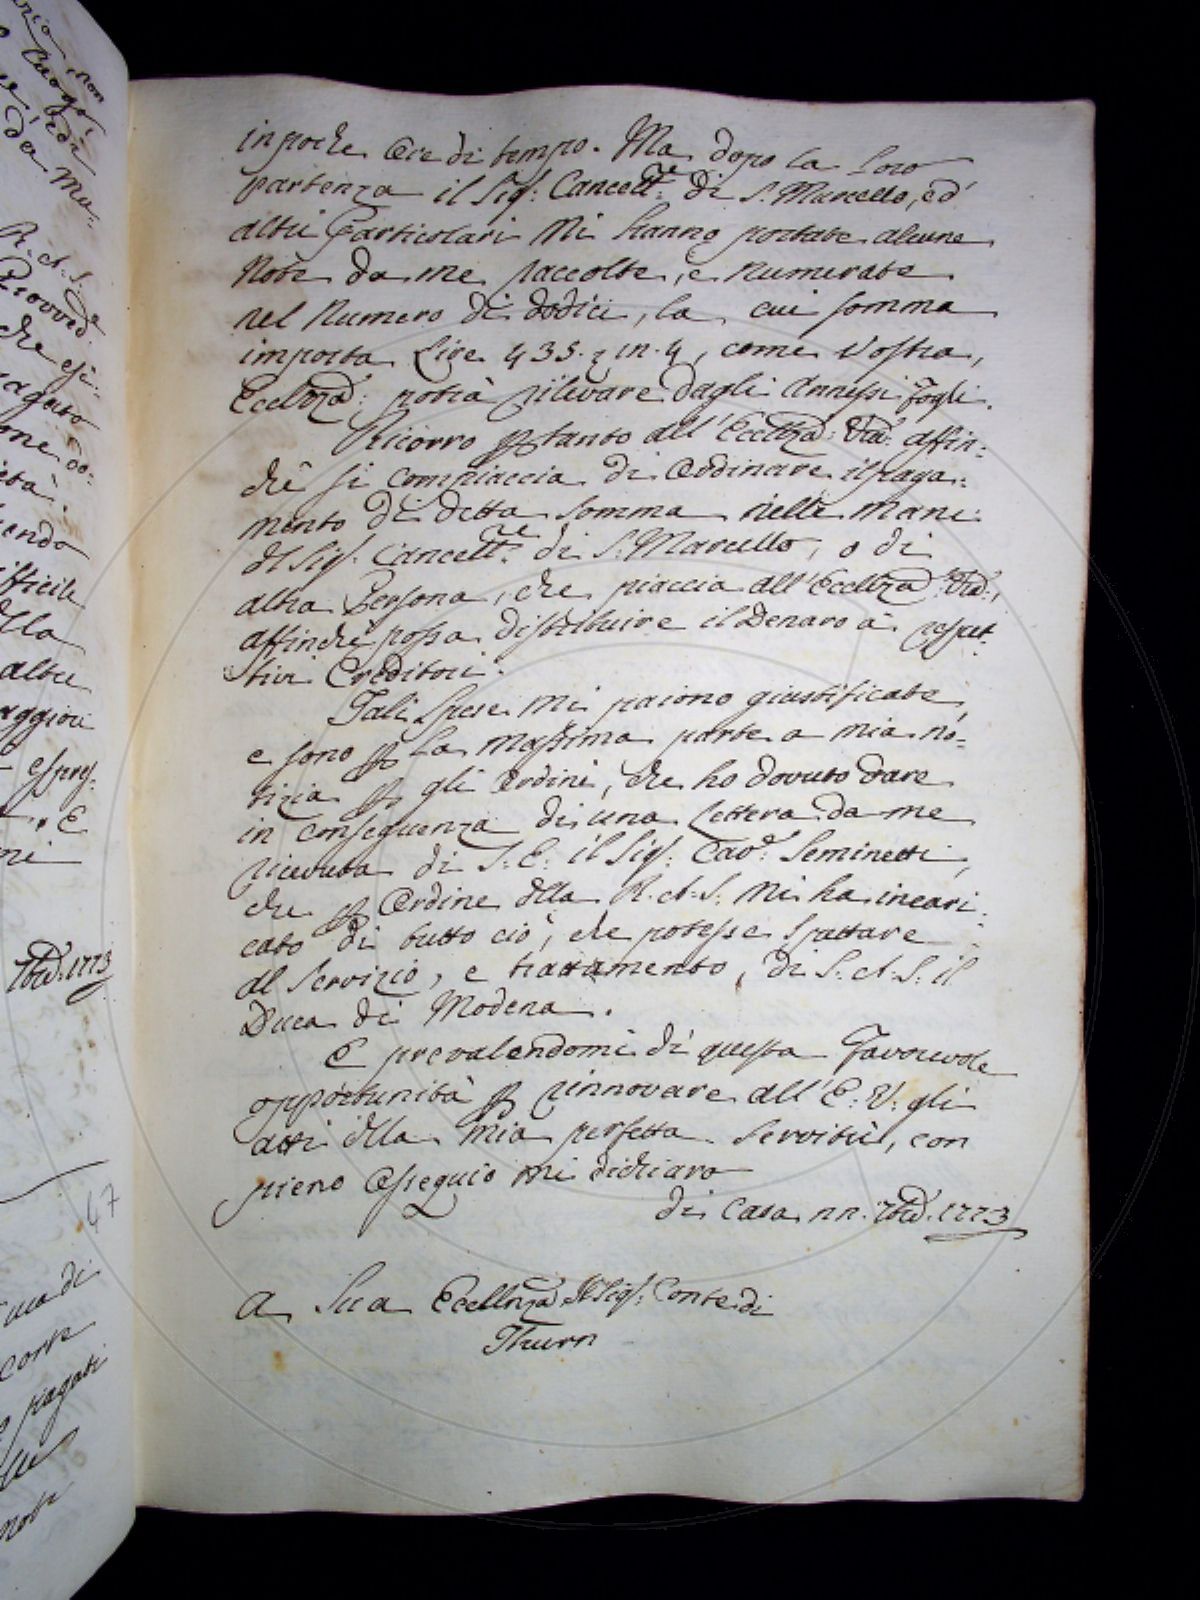 in poche Ore di tempo. Ma dopo la loro
partenza il Sig.: Cancell.re di S. Marcello, ed
altri Particolari Mi hanno portate alcune
Note da me raccolte, e numerate
nel Numero di dodici, la cui somma
importa Lire 435. 3 in. 4, come Vostra
Ecellnza: potrà rilevare dagli Annessi Fogli.
Ricorro p tanto all'Ecellnza: Vra: affin:
chè si compiaccia di Ordinare il paga:
mento di detta somma nelle mani
dl Sig.: Cancell.re di S. Marcello, o di
altra Persona, che piaccia all'Ecellnza: Vra:,
affinchè possa distribuire il Denaro a' respet:
tivi Creditori.
Tali Spese mi paiono giustificate,
e sono p la massima parte a mia no:
tizia p gli Ordini, che ho dovuto dare
in conseguenza di una Lettera da me
ricevuta di S: E: il Sig: Cav: Seminetti,
che p Ordine dlla R. A. S. Mi ha incari:
cato di tutto ciò, che potesse Spettare
al Servizio, e trattamento, di S. A. S. il
Duca di Modena.
E prevalendomi di questa Favorevole
opportunità p rinnovare all'E: V: gli
atti dlla mia perfetta Servitù, con
pieno Ossequio mi dichiaro
di Casa 1773
A Sua Ecellnza Sig: Conte di
Thurn
1773
47